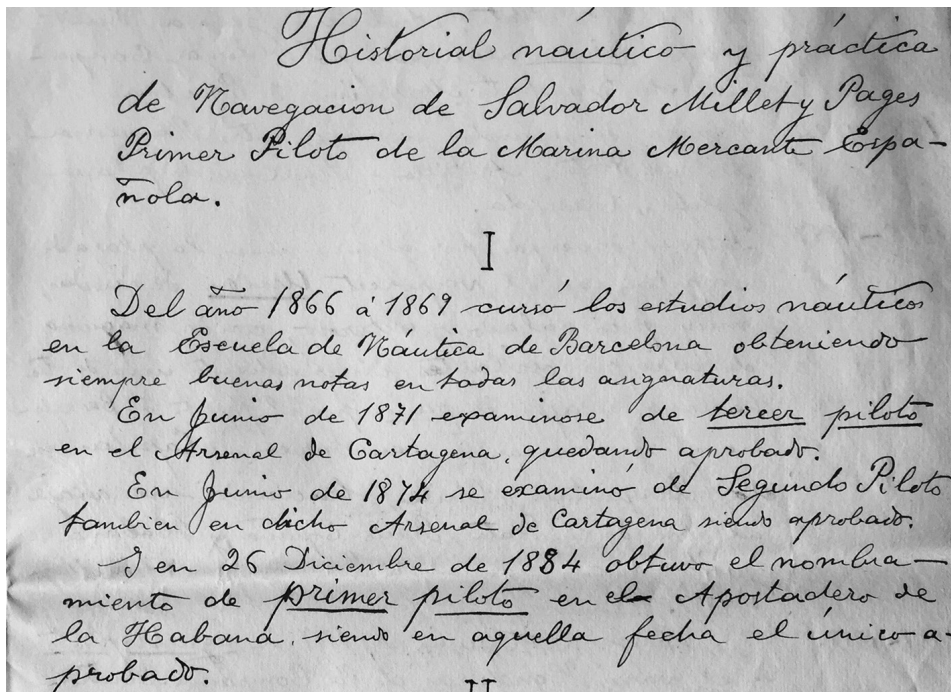 Historial náutico y práctica
de Navegacion de Salvador Millet y Pages
Primer Piloto de la Marina Mercante Espa-
ñola.
I
Del año 1866 á 1869 cursó los estudios náuticos
en la Escuela de Náutica de Barcelona obteniendo
siempre buenas notas en todas las asignaturas.
En Junio de 1871 examinose de tercer piloto
en el Arsenal de Cartagena, quedando aprobado.
En Junio de 1874 se examinó de Segundo Piloto
tambien en dicho Arsenal de Cartagena siendo aprobado.
I en 26 Diciembre de 1884 obtuvo el nombra-
miento de primer piloto en el Apostadero de
la Habana, siendo en aquella fecha el único a-
probado.
II